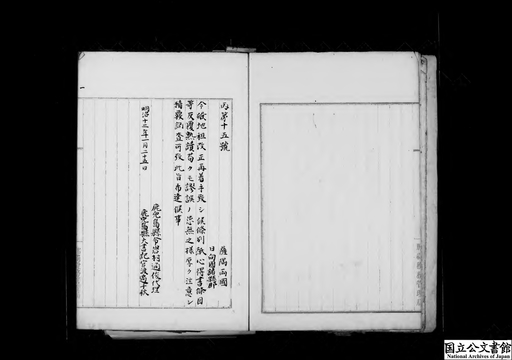 丙第十五號
薩隅兩國
日向國諸縣郡
今般地租改正再着手致シ候條別紙心得書條目
等反覆熟讀苟クモ謬誤ノ患無之樣厚ク注意シ
精覈調査可致此旨布達候事
明治十三年一月二十五日
鹿兒島縣令岩村通俊代理
鹿兒島縣大書記官渡邊千秋
国立公文書館
National Archives of Japan